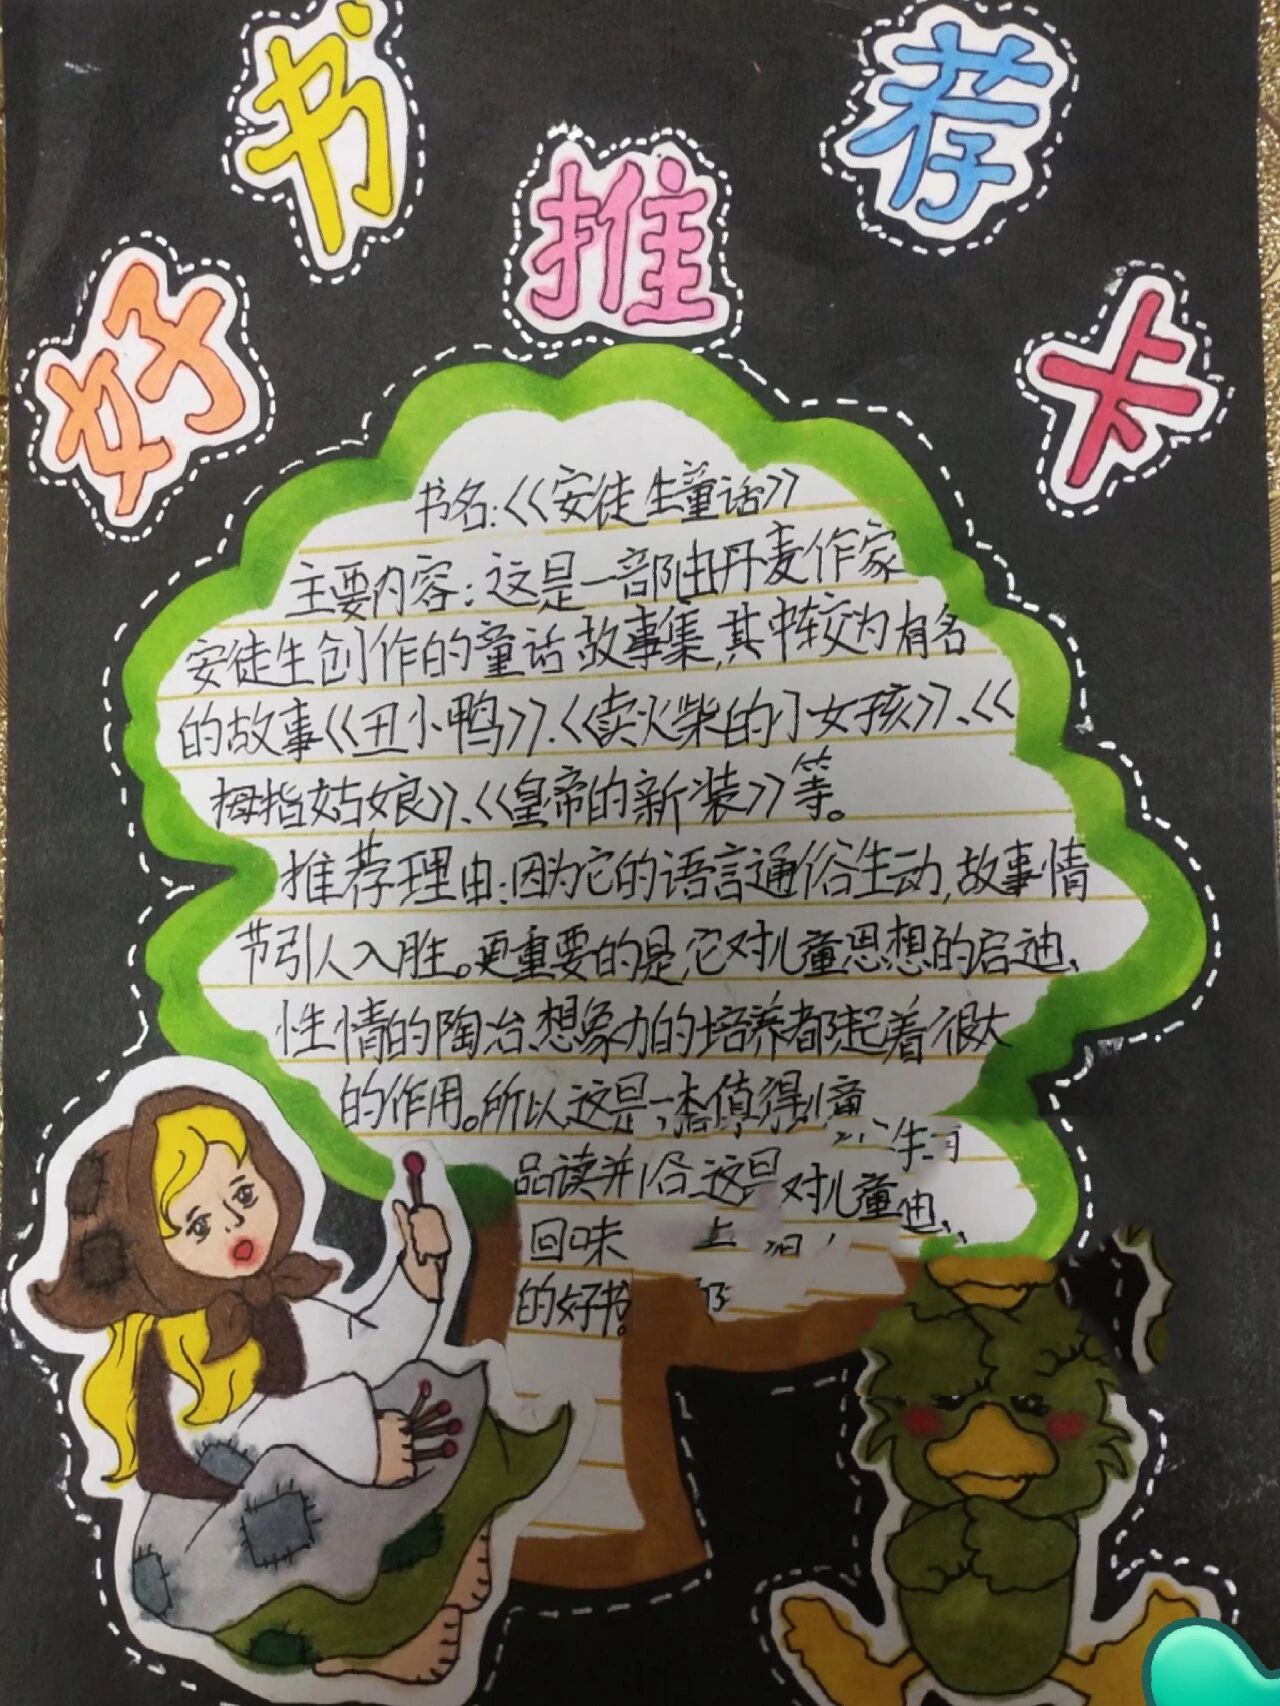 好书推荐卡
书名:《安徒生童话》
主要内容:这是一部由丹麦作家
安徒生创作的童话故事集,其中较为有名
的故事《丑小鸭》、《卖火柴的小女孩》、《
拇指姑娘》、《皇帝的新装》等。
推荐理由:因为它的语言通俗生动,故事情
节引人入胜。更重要的是,它对儿童思想的启迪、
性情的陶冶、想象力的培养都起着很大
的作用。所以,这是一本值得儿童
品读并 这是对儿童迪、
回味 上
的好书。